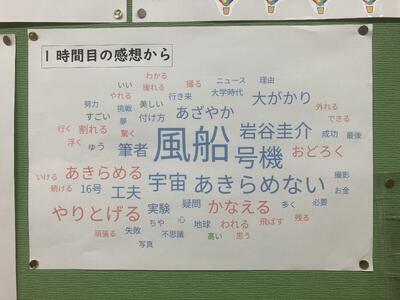 1時間目の感想から
わかる
いい 撮れる 撮る ニュース 理由
やれる 大学時代
努力 挑戦 美しい 行き来 大がかり
すごい 夢 付け方 あざやか 外れる
できる
行く 割れる 驚く 風船 岩谷圭介 成功 最後
浮く ゆう 筆者 号機 おどろく
いける あきらめる 宇宙 あきらめない 撮影
続ける 16号 工夫 お金
やりとげる 実験 疑問 かなえる 多く 必要
ちや 心 地球 われる 飛ばす 残る
頑張る 失敗 不思議 高い 思う
写真